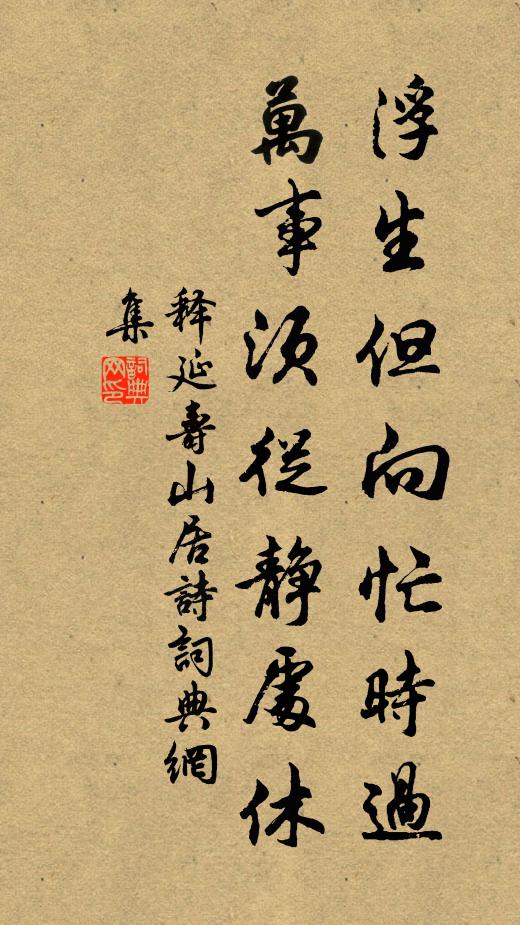 浮生但向忙時過
萬事須從静處休
释延壽山居詩詞典網
集
詞典網印